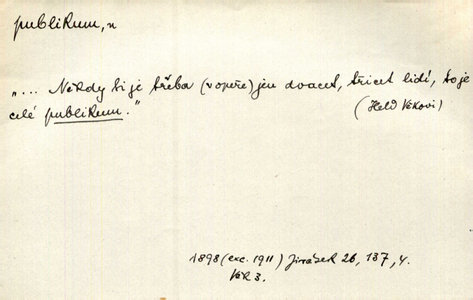 publikum, n
„... Někdy ti je třeba (v opeře) jen dvacet, třicet lidí, to je
celé publikum.“
(Held Věkovi)
1898 (exc. 1911) Jirásek 26, 137, 4.
Věk 3.